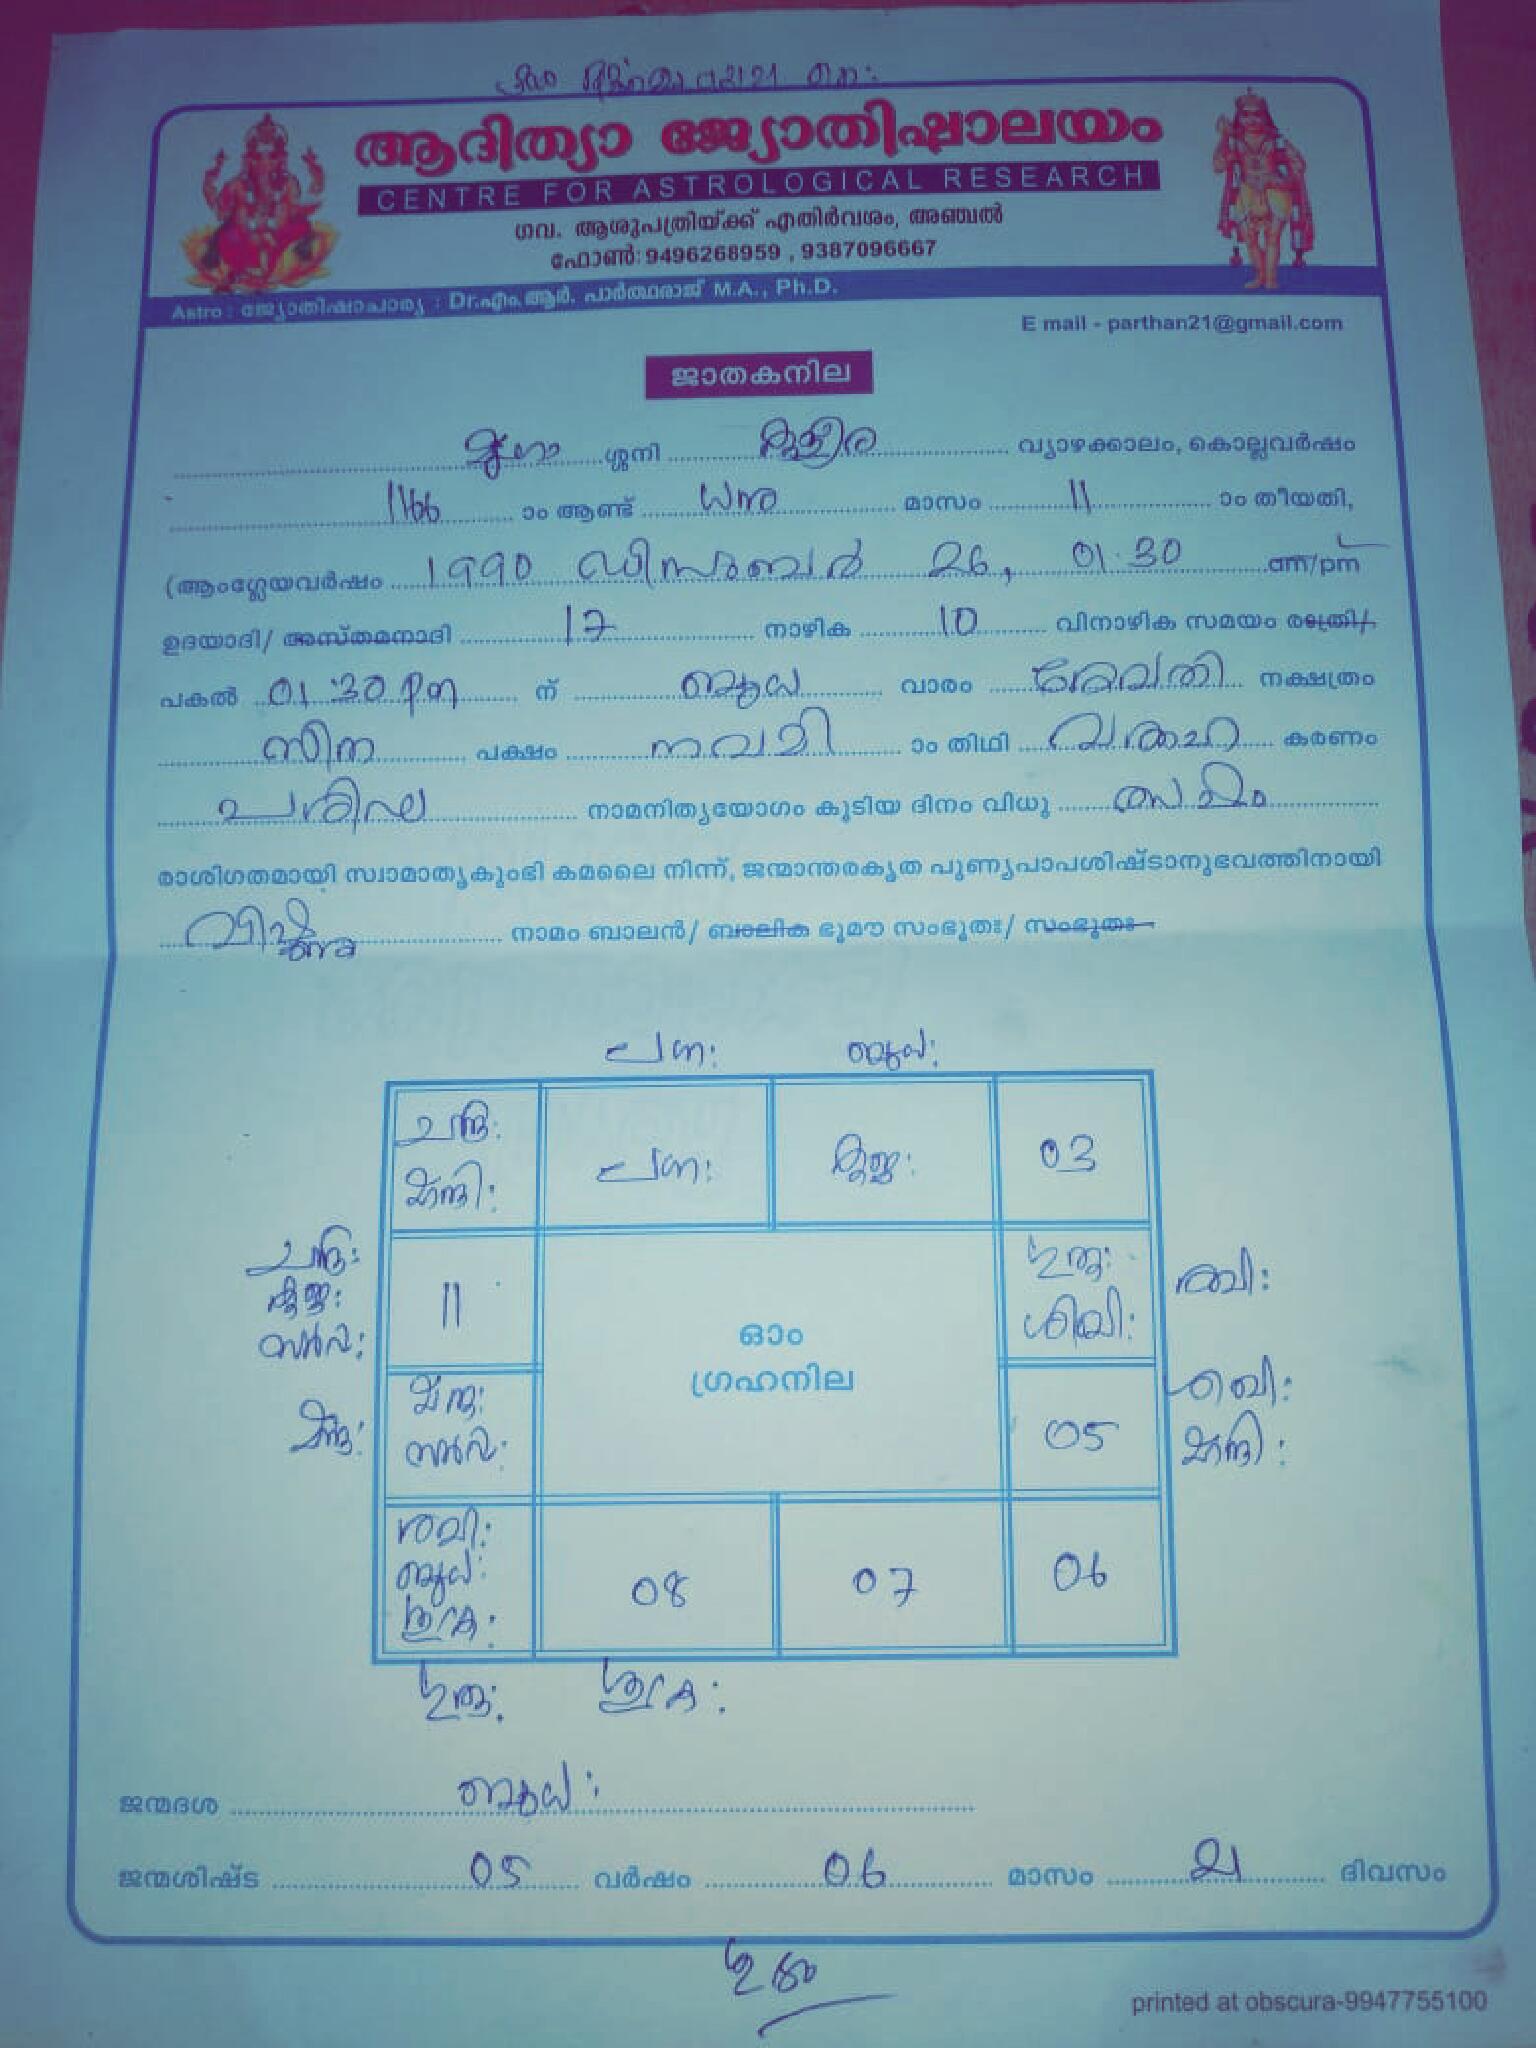 ആദിത്യാ ജ്യോതിഷാലയം
CENTRE FOR ASTROLOGICAL RESEARCH
ഗവ. ആശുപത്രിയ്ക്ക് എതിർവശം, അഞ്ചൽ
ഫോൺ: 9496268959 , 9387096667
Astro : ജ്യോതിഷാചാര്യ : Dr.എം.ആർ. പാർത്ഥരാജ് M.A., Ph.D.
E mail - parthan21@gmail.com
ജാതകനില
ശ്ശനി കുളീര വ്യാഴക്കാലം, കൊല്ലവർഷം
1166 ാം ആണ്ട് ധനു മാസം 11 ാം തീയതി,
(ആംഗ്ലേയവർഷം 1990 ഡിസംബർ 26, 01.30 am/pm
ഉദയാദി/ അസ്തമനാദി 17 നാഴിക 10 വിനാഴിക സമയം രാത്രി/
പകൽ 01:30 pm ന് ബുധ വാരം രേവതി നക്ഷത്രം
സിത പക്ഷം നവമി ാം തിഥി വരാഹ കരണം
നാമനിത്യയോഗം കൂടിയ ദിനം വിധു
രാശിഗതമായി സ്വാമാതൃകുംഭി കമലൈ നിന്ന്, ജന്മാന്തരകൃത പുണ്യപാപശിഷ്ടാനുഭവത്തിനായി
വിഷ്ണു നാമം ബാലൻ/ ബാലിക ഭൂമൗ സംഭൂതഃ/ സംഭൂതഃ
ലഗ്ന: ബുധ:
ചന്ദ്ര: ലഗ്ന: കുജ: 03
മാന്ദി:
ചന്ദ്ര: 11 ഗുരു: രവി:
കുജ: ശിഖി:
സർപ്പ:
ഓം
ഗ്രഹനില
മന്ദ: മന്ദ: 05 ശിഖി:
സർപ്പ: മാന്ദി:
രവി: 08 07 06
ബുധ:
ശുക്ര:
ഗുരു: ശുക്ര:
ജന്മദശ ബുധ:
ജന്മശിഷ്ട 05 വർഷം 06 മാസം 21 ദിവസം
ശുഭം
printed at obscura-9947755100